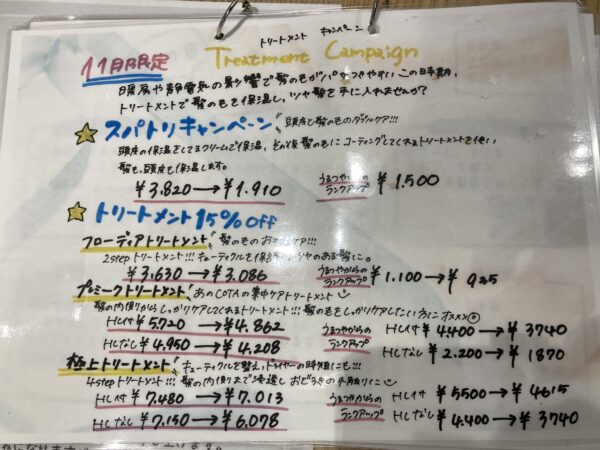 トリートメント キャンペーン
11月限定 Treatment Campaign
暖房や静電気の影響で髪の毛がパサつきやすいこの時期、
トリートメントで髪の毛を保湿し、ツヤ髪を手に入れませんか?
☆スパトリキャンペーン 頭皮と髪の毛のダブルケア!!!
頭皮の保湿をしてるクリームで保湿、その後髪の毛にコーティングしてくれるトリートメントを使い
髪も頭皮も保湿します。
¥3.820→¥1.910 うるつやからのランクアップ ¥1.500
☆トリートメント15%off
フローディアトリートメント 髪の毛のお
2stepトリートメント!!!キューティクルを保 ツヤのある髪に。
¥3.630→¥3.086 うるつやからのランクアップ ¥1.100→¥ 935
プルミークトリートメント あのCOTAの集中ケアトリートメント
髪の内側からしっかりケアしてくれるトリートメント!!!髪の毛をしっかりケアしたい方にオススメ◎
HL付 ¥5.720→¥4.862 うるつやからのランクアップ HL付 ¥4.400→¥3740
HLなし ¥4.950→¥4.208 HLなし ¥2.200→¥1870
極上トリートメント キューティクルを整え、ドライヤーの時短にも!!!
4stepトリートメント!!!髪の内側まで浸透し おどろきの手触りに
HL付 ¥7.480→¥7.013 うるつやからのランクアップ HL付 ¥5500→¥4615
HLなし ¥7.150→¥6.078 HLなし ¥4.400→¥3740